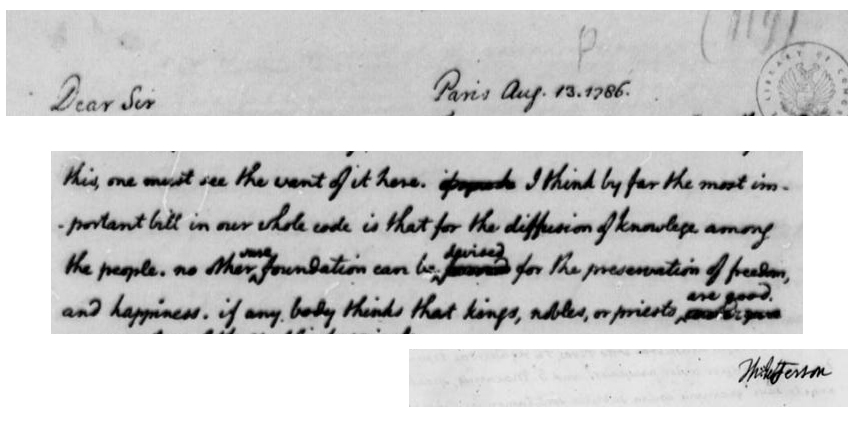 Dear Sir Paris Aug. 13. 1786.
LIBRARY OF CONG
this, one must see the want of it here. I think by far the most im-
-portant bill in our whole code is that for the diffusion of knowlege among
sure devised
the people. no other foundation can be for the preservation of freedom,
are good
and happiness. if any body thinks that kings, nobles, or priests
Th: Jefferson